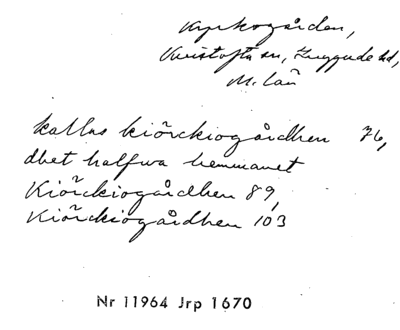 Kyrkogården,
Kvistofta sn, Luggude hd,
M. län
kallas kiörckiogårdhen 76,
dhet halfwa hemmanet
Kiörckiogårdhen 89,
Kiörckiogårdhen 103
Nr 11964 Jrp 1670